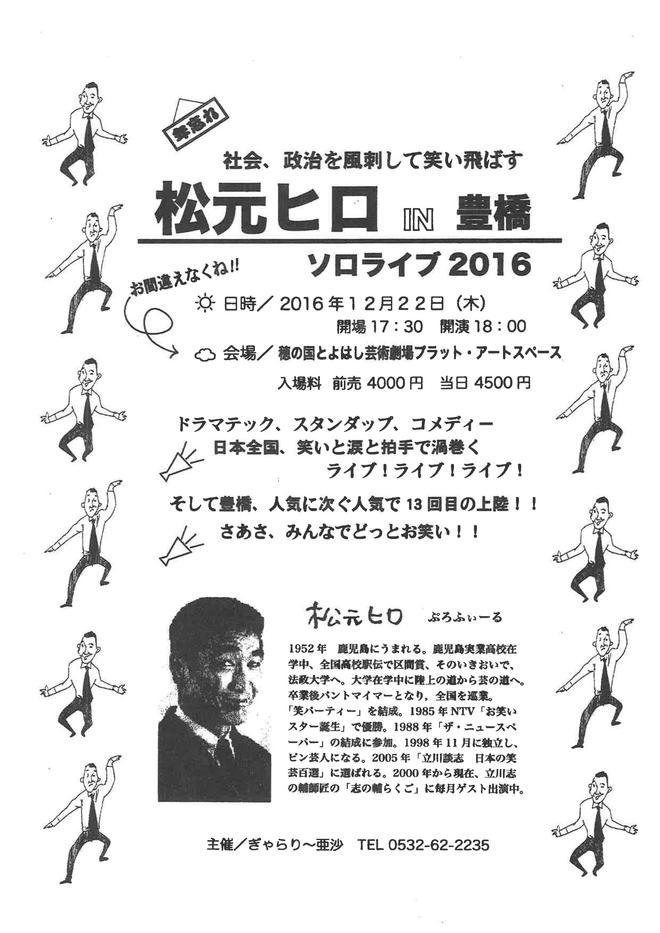 年忘れ
社会、政治を風刺して笑い飛ばす
松元ヒロ IN 豊橋
ソロライブ 2016
お間違えなくね!!
日時／ 2016年12月22日（木）
開場17：30　開演18：00
会場／ 穂の国とよはし芸術劇場プラット・アートスペース
入場料　前売 4000円　当日 4500円
ドラマテック、スタンダップ、コメディー
日本全国、笑いと涙と拍手で渦巻く
ライブ！ライブ！ライブ！
そして豊橋、人気に次ぐ人気で 13 回目の上陸！！
さあさ、みんなでどっとお笑い！！
松元ヒロ　ぷろふぃーる
1952年　鹿児島にうまれる。鹿児島実業高校在
学中、全国高校駅伝で区間賞、そのいきおいで、
法政大学へ。大学在学中に陸上の道から芸の道へ。
卒業後パントマイマーとなり，全国を巡業。
「笑パーティー」を結成。1985年NTV「お笑い
スター誕生」で優勝。1988年「ザ・ニュースペ
ーパー」の結成に参加。1998年11月に独立し、
ピン芸人になる。2005年「立川談志　日本の笑
芸百選」に選ばれる。2000年から現在、立川志
の輔師匠の「志の輔らくご」に毎月ゲスト出演中。
主催／ぎゃらり～亜沙　TEL 0532-62-2235